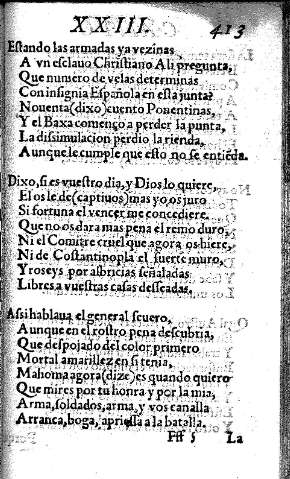 XXIII. 413
Estando las armadas ya vezinas
A vn esclauo Christiano Ali pregunta,
Que numero de velas determinas
Con insignia Española en esta junta?
Nouenta (dixo) cuento Ponentinas,
Y el Baxa começo a perder la punta,
La dissimulacion perdio la rienda,
Aunque le cumple que esto no se entiēda.
Dixo, si es vuestro dia, y Dios lo quiere,
El os le de (captiuos) mas yo os juro
Si fortuna el vencer me concediere.
Que no os dara mas pena el remo duro,
Ni el Comitre cruel que agora os hiere,
Ni de Costantinopla el fuerte muro,
Y roseys por albricias señaladas
Libres a vuestras casas desseadas.
Assi hablaua el general seuero,
Aunque en el rostro pena descubria,
Que despojado del color primero
Mortal amarillez en si tenia,
Mahoma agora (dize) es quando quiero
Que mires por tu honra y por la mia,
Arma, soldados, arma, y vos canalla
Arranca, boga, apriessa a la batalla.
Fff 5 La